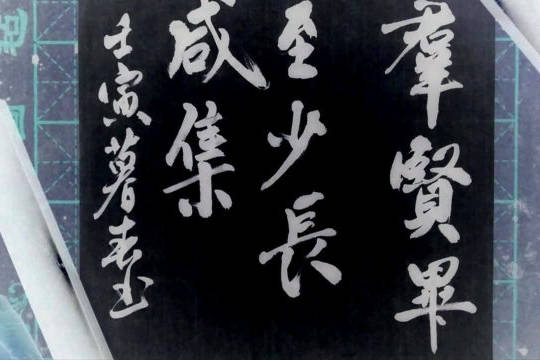 羣賢畢
至少長
咸集
壬寅暮春書